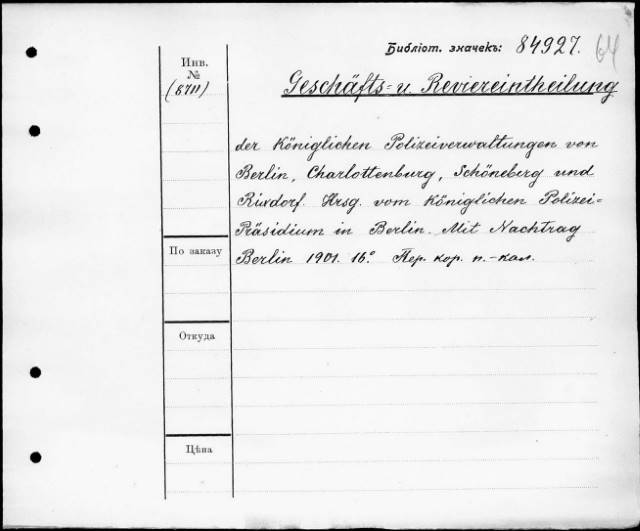 Библіот. значекъ: 84927. 64
Инв.
№
(8711)
Geschäfts- u. Reviereintheilung
der Königlichen Polizeiverwaltungen von
Berlin, Charlottenburg, Schöneberg und
Rixdorf. Hrsg. vom Königlichen Polizei-
Präsidium in Berlin. Mit Nachtrag
По заказу
Berlin 1901. 16° Пер. кор. п.-кал.
Откуда
Цѣна